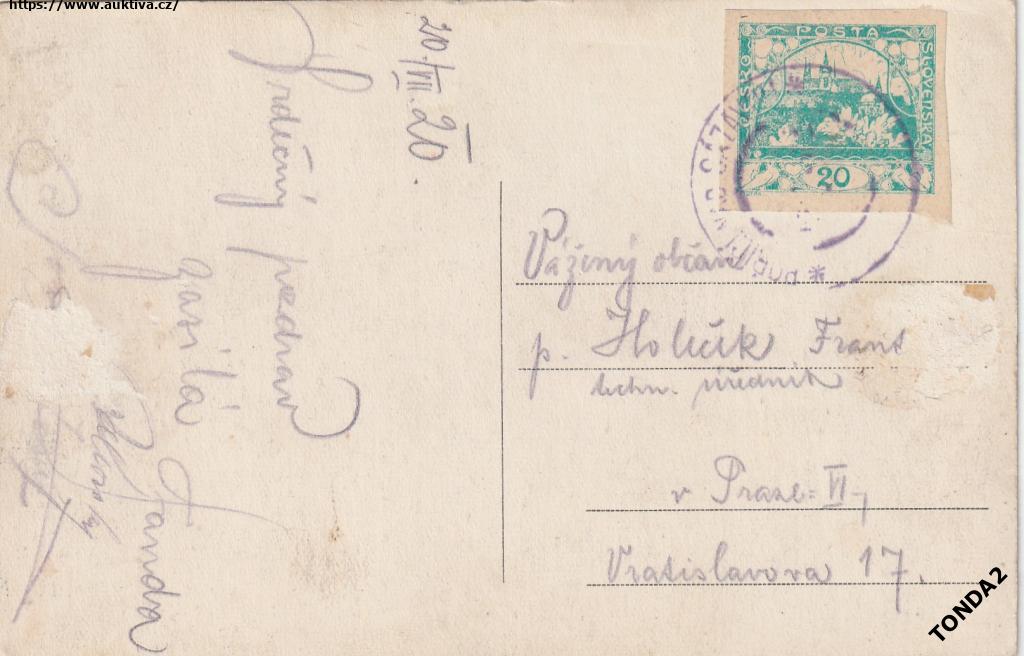 https://www.auktiva.cz/
20./VII. 20.
Srdečný pozdrav
zasílá
Fanda
POŠTA
ČESKO
SLOVENSKÁ
20
SÁZAV
Vážený občan
p. Holečk Frant
techn. úředník
v Praze-VI-,
Vratislavova 17.
TONDA2